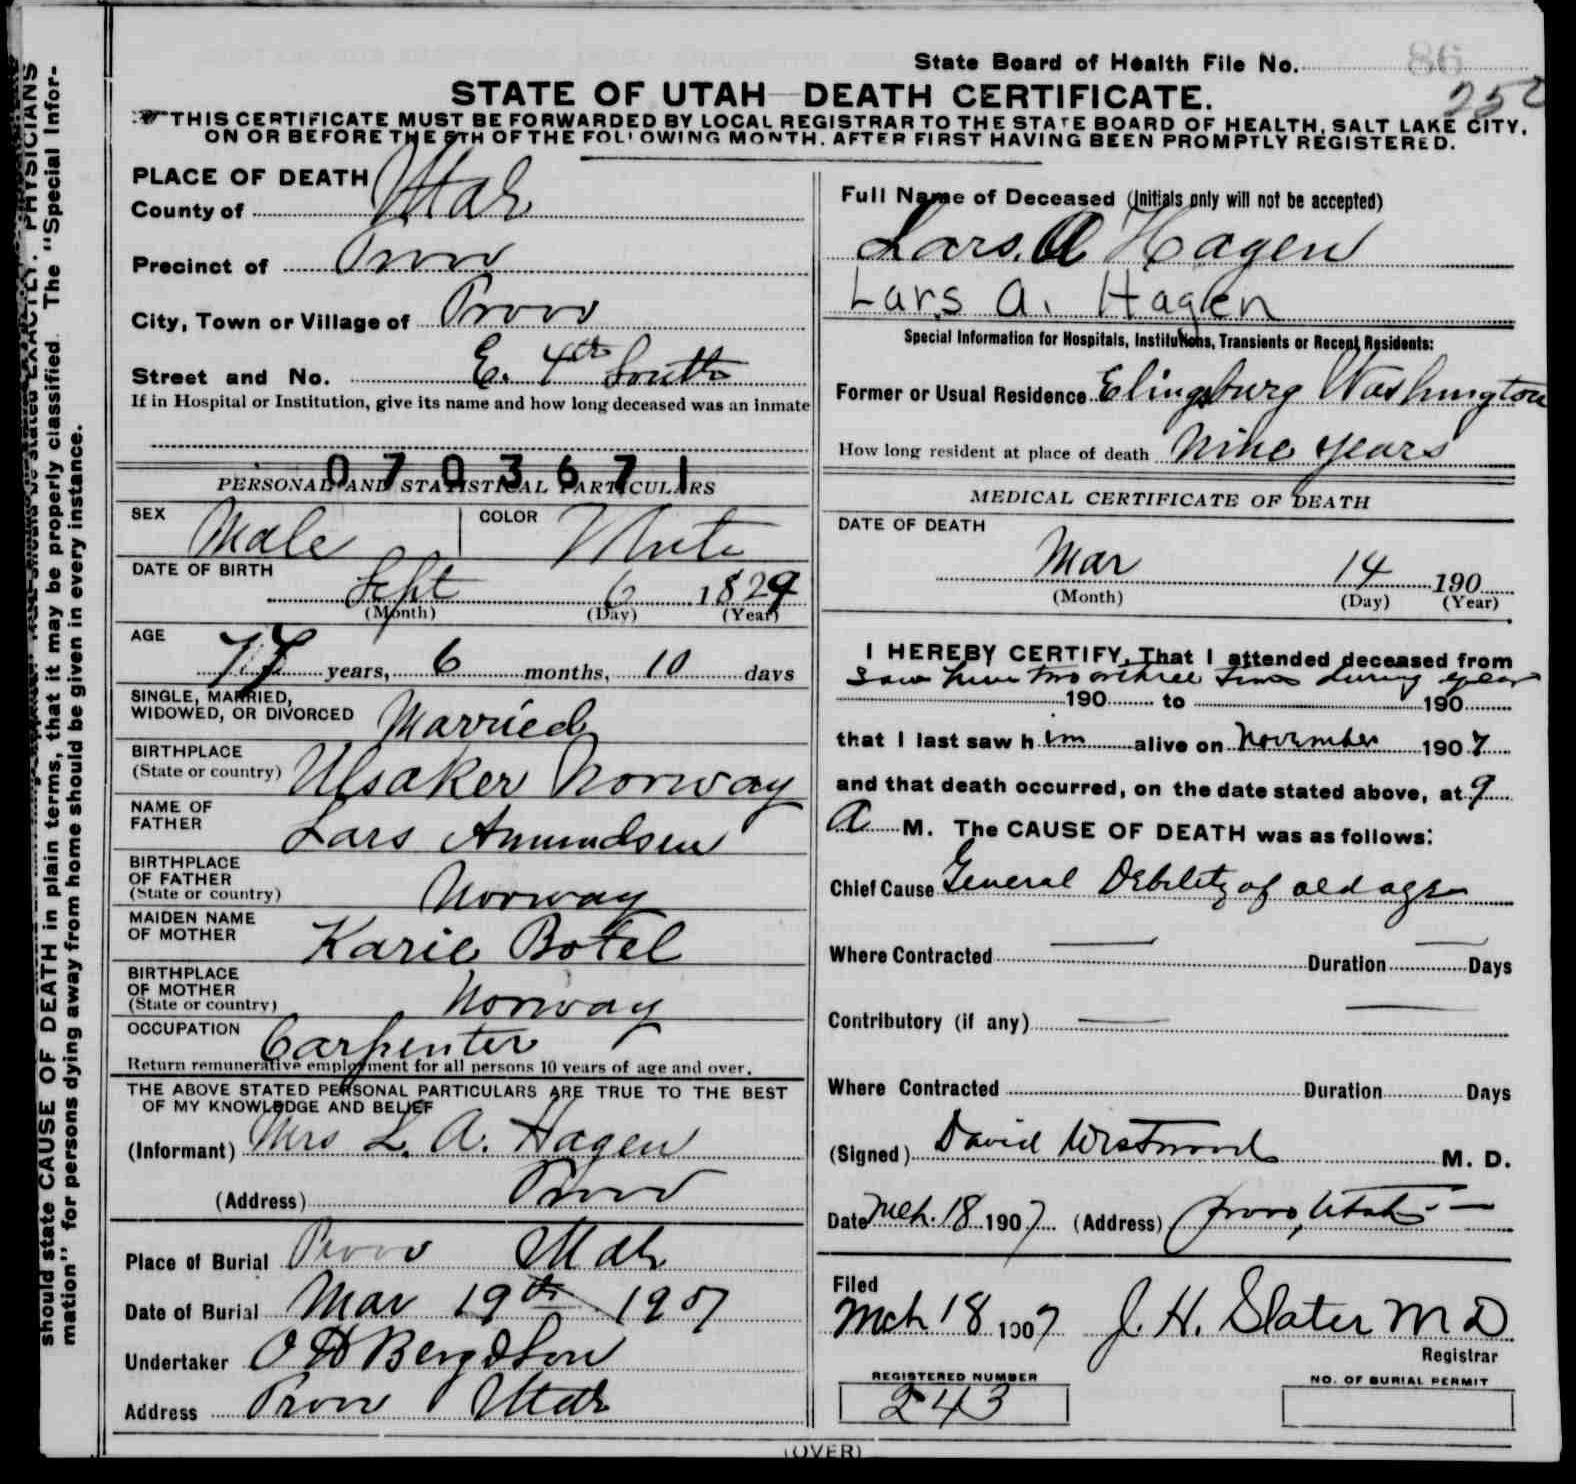 should state CAUSE OF DEATH in plain terms, that it may be properly classified. The "Special Infor-
mation" for persons dying away from home should be given in every instance.
State Board of Health File No. 86
250
STATE OF UTAH—DEATH CERTIFICATE.
THIS CERTIFICATE MUST BE FORWARDED BY LOCAL REGISTRAR TO THE STATE BOARD OF HEALTH, SALT LAKE CITY,
ON OR BEFORE THE 5TH OF THE FOLLOWING MONTH, AFTER FIRST HAVING BEEN PROMPTLY REGISTERED.
PLACE OF DEATH
County of Utah
Precinct of Provo
City, Town or Village of Provo
Street and No. E. 4th South
If in Hospital or Institution, give its name and how long deceased was an inmate
0703671
PERSONAL AND STATISTICAL PARTICULARS
SEX Male COLOR White
DATE OF BIRTH Sept 6 1829
(Month) (Day) (Year)
AGE 77 years, 6 months, 10 days
SINGLE, MARRIED,
WIDOWED, OR DIVORCED Married
BIRTHPLACE
(State or country) Ulsaker Norway
NAME OF
FATHER Lars Amundsen
BIRTHPLACE
OF FATHER
(State or country) Norway
MAIDEN NAME
OF MOTHER Karie Botel
BIRTHPLACE
OF MOTHER
(State or country) Norway
OCCUPATION Carpenter
Return remunerative employment for all persons 10 years of age and over.
THE ABOVE STATED PERSONAL PARTICULARS ARE TRUE TO THE BEST
OF MY KNOWLEDGE AND BELIEF
(Informant) Mrs L. A. Hagen
(Address) Provo
Place of Burial Provo Utah
Date of Burial Mar 19th 1907
Undertaker O H Berg & Son
Address Provo Utah
Full Name of Deceased (Initials only will not be accepted)
Lars. A Hagen
Lars A. Hagen
Special Information for Hospitals, Institutions, Transients or Recent Residents:
Former or Usual Residence Elingsburg Washington
How long resident at place of death Nine years
MEDICAL CERTIFICATE OF DEATH
DATE OF DEATH
Mar 14 190
(Month) (Day) (Year)
I HEREBY CERTIFY, That I attended deceased from
Saw him two or three times during year
190 to 190
that I last saw h im alive on November 1907
and that death occurred, on the date stated above, at 9
A M. The CAUSE OF DEATH was as follows:
Chief Cause General Debility of old age
Where Contracted — Duration — Days
Contributory (if any) — —
Where Contracted Duration Days
(Signed) David Westwood M. D.
Date Mch. 18 1907 (Address) Provo, Utah —
Filed
Mch 18 1907 J. H. Slater M D
Registrar
REGISTERED NUMBER NO. OF BURIAL PERMIT
243
(OVER)